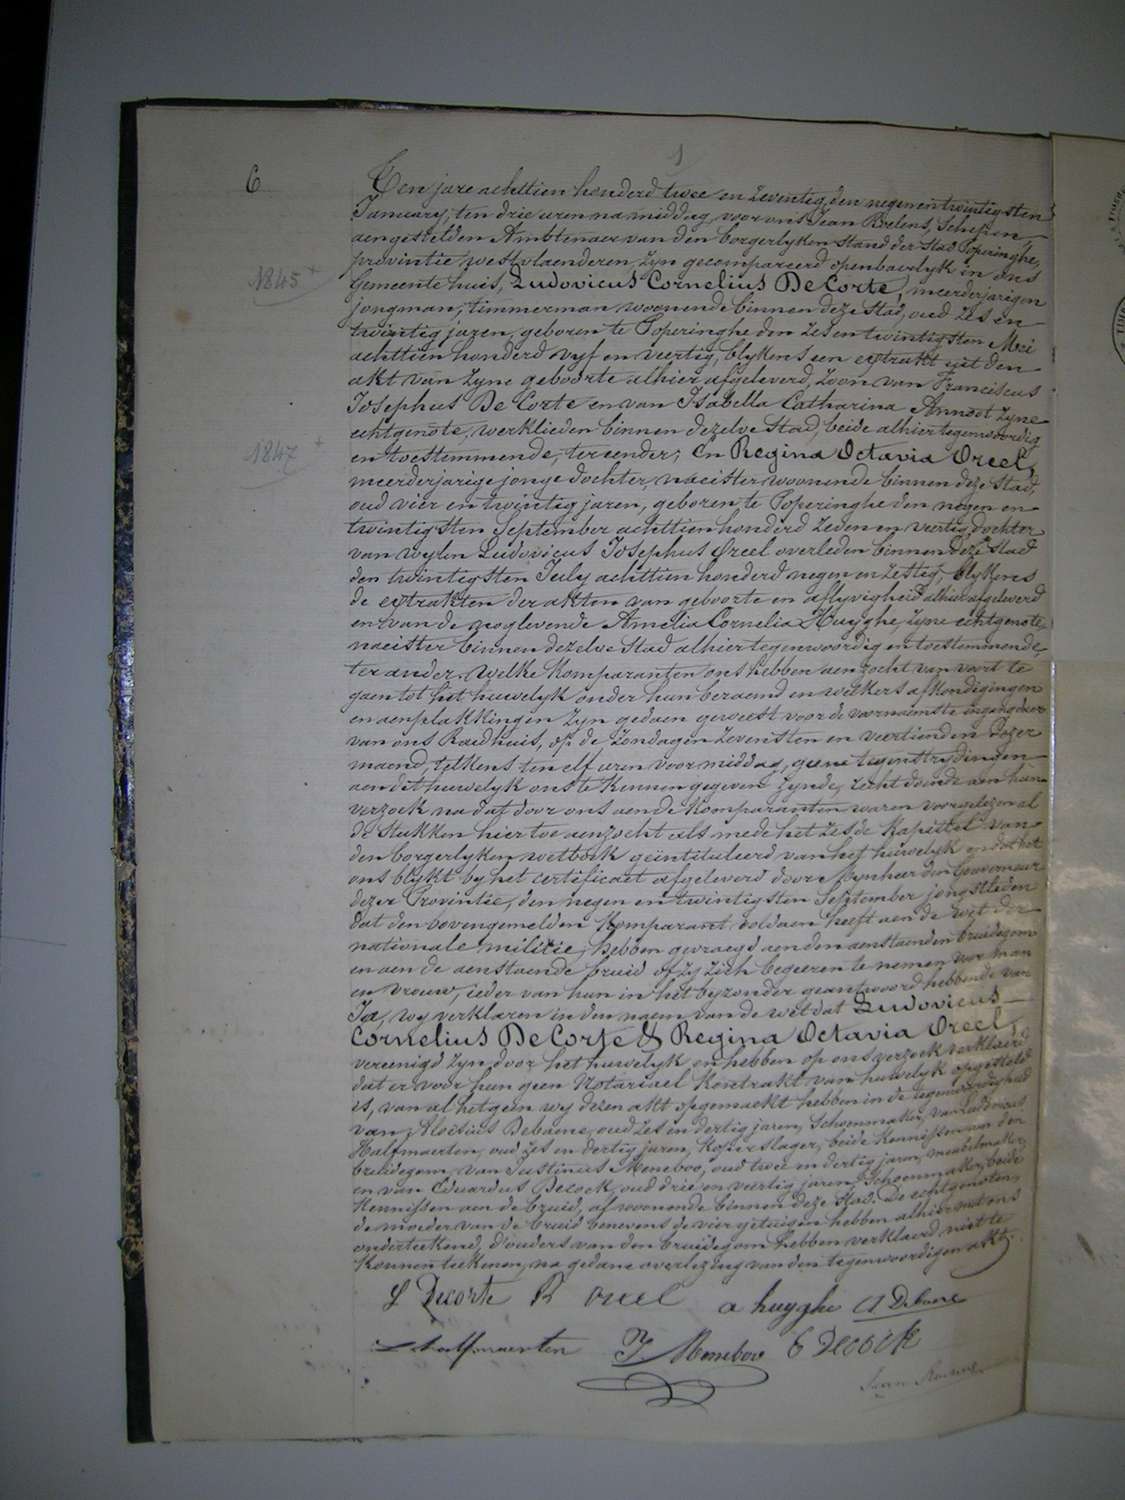 1
6
Ten jare achttien honderd twee en zeventig, den negenentwintigsten
January, ten drie uren namiddag, voor ons Jean Roelens, Schepen
aengestelden Ambtenaer van den borgerlyken stand der Stad Poperinghe,
provintie westvlaenderen, zyn gecompareerd openbaerlyk in ons
1845 +
Gemeentehuis, Ludovicus Cornelius De Corte, meerderjarigen
jongman, timmerman, woonende binnen deze Stad, oud zes en
twintig jaren, geboren te Poperinghe den zesentwintigsten Mei
achttien honderd vyf en veertig, blykens een extrakt uit den
akt van zyne geboorte alhier afgeleverd, zoon van Franciscus
Josephus De Corte en van Isabella Catharina Annoot zyne
echtgenote, werklieden binnen dezelve Stad, beide alhier tegenwoordig
1847 +
en toestemmende, ter eender; En Regina Octavia Oreel,
meerderjarige jonge dochter, naeister, woonende binnen deze Stad,
oud vier en twintig jaren, geboren te Poperinghe den negen en
twintigsten September achttien honderd zeven en veertig, dochter
van wylen Ludovicus Josephus Oreel overleden binnen deze Stad
den twintigsten July achttien honderd negen en zestig, blykens
de extrakten der akten van geboorte en aflyvigheid alhier afgeleverd
en van de noglevende Amelia Cornelia Huyghe, zyne echtgenote
naeister binnen dezelve Stad alhier tegenwoordig en toestemmende,
ter ander. Welke komparanten ons hebben aenzocht van voort te
gaen tot het huwelyk onder hun beraemd en welkers afkondigingen
en aenplakkingen zyn gedaen geweest voor de voornaemste ingangdeur
van ons Raedhuis, op de zondagen zevensten en veertienden dezer
maend, telkens ten elf uren voormiddag, geene tegenstrydingen
aen dit huwelyk ons te kennen gegeven zynde, recht doende aen hun
verzoek na dat door ons aen de komparanten waren voorgelezen al
de stukken hier toe aenzocht als mede het zesde kapittel van
den borgerlyken wetboek geïntituleerd van het huwelyk en dat het
ons blykt by het certificaet afgeleverd door Mynheer den Gouverneur
dezer Provintie, den negen en twintigsten September jongstleden
dat den bovengemelden komparant voldaen heeft aen de wet der
nationale militie; hebben gevraegd aen den aenstaenden bruidegom
en aen de aenstaende bruid of zy zich begeeren te nemen voor man
en vrouw, ieder van hun in het byzonder geantwoord hebbende van
Ja, wy verklaren in den naem van de wet dat Ludovicus
Cornelius De Corte & Regina Octavia Oreel,
vereenigd zyn door het huwelyk en hebben op ons verzoek verklaerd
dat er voor hun geen Notariael kontrakt van huwelyk opgesteld
is, van al hetgeen wy dezen akt opgemaekt hebben in de tegenwoordigheid
van Aloisius Debaene, oud zes en dertig jaren, Schoenmaker, van Ludovicus
Halfmaerten, oud zes en dertig jaren, koperslager, beide kennissen aen den
bruidegom, van Justinus Meneboo, oud twee en dertig jaren, meubelmaker,
en van Eduardus Decock, oud drie en veertig jaren, Schoenmaker, beide
kennissen aen de bruid, al woonende binnen deze Stad. De echtgenoten,
de moeder van de bruid benevens de vier getuigen hebben alhier met ons
onderteekend, d'ouders van den bruidegom hebben verklaerd niet te
konnen teekenen, na gedane overlezing van den tegenwoordigen akt.
L Decorte R oreel a huyghe A Debaene
L halfmaerten J. Meneboo E Decock
Jean Roelens